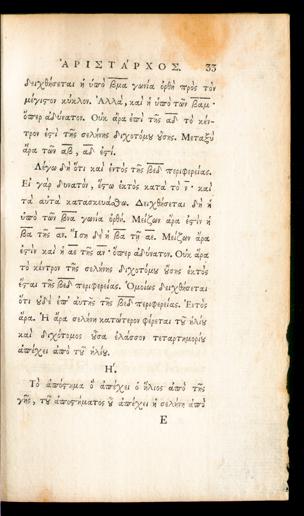 ἈΡΙΣΤΑΡΧΟΣ. 33
δειχθήσεται ἡ ὑπὸ βμα γωνία ὀρθὴ πρὸς τὸν
μέγιστον κύκλον. Ἀλλὰ, καὶ ἡ ὑπὸ τῶν βαμ·
ὅπερ ἀδύνατον. Οὐκ ἄρα ἐπὶ τῆς αδ τὸ κέν-
τρον ἐστὶ τῆς σελήνης διχοτόμου οὔσης. Μεταξὺ
ἄρα τῶν αβ, αδ ἐστί.
Λέγω δὴ ὅτι καὶ ἐντὸς τῆς βεδ περιφερείας.
Εἰ γὰρ δυνατὸν, ἔστω ἐκτὸς κατὰ τὸ ν· καὶ
τὰ αὐτὰ κατασκευάσθω. Δειχθήσεται δὴ ἡ
ὑπὸ τῶν βνα γωνία ὀρθή. Μείζων ἄρα ἐστὶν ἡ
βα τῆς αν. Ἴση δὲ ἡ βα τῇ αε. Μείζων ἄρα
ἐστὶν καὶ ἡ αε τῆς αν· ὅπερ ἀδύνατον. Οὐκ ἄρα
τὸ κέντρον τῆς σελήνης διχοτόμου οὔσης ἐκτὸς
ἔσται τῆς βεδ περιφερείας. Ὁμοίως δειχθήσεται
ὅτι οὐδὲ ἐπ' αὐτῆς τῆς βεδ περιφερείας. Ἐντὸς
ἄρα. Ἡ ἄρα σελήνη κατώτερον φέρεται τοῦ ἡλίου
καὶ διχότομος οὖσα ἔλασσον τεταρτημορίου
ἀπέχει ἀπὸ τοῦ ἡλίου.
Η΄.
Τὸ ἀπόστημα ὃ ἀπέχει ὁ ἥλιος ἀπὸ τῆς
γῆς, τοῦ ἀποστήματος οὗ ἀπέχει ἡ σελήνη ἀπὸ
E